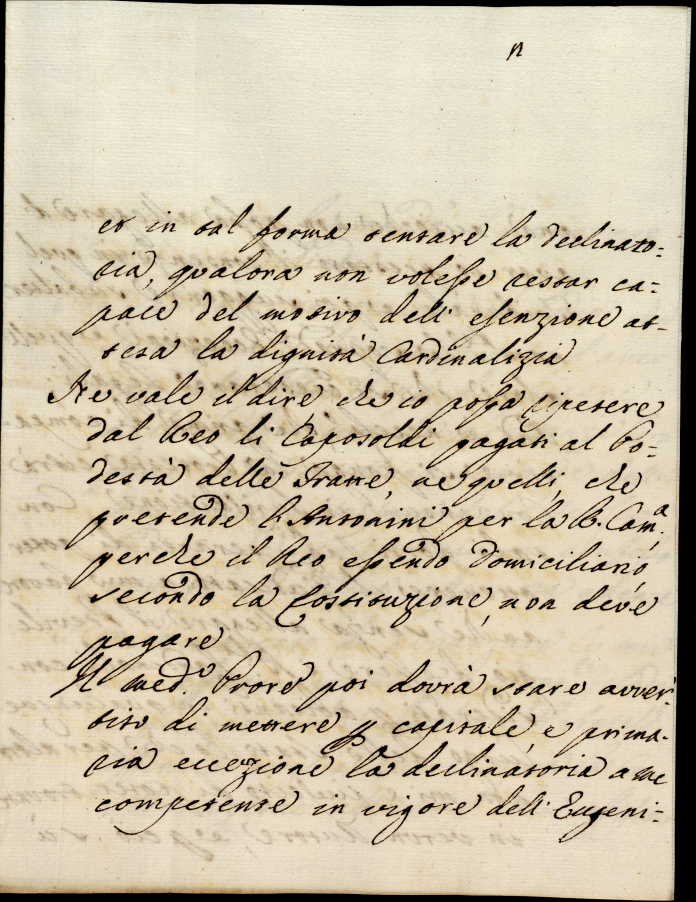 et in tal forma tentare la declinato=
ria, qualora non volesse restar ca=
pace del motivo dell' esenzione at=
tesa la dignità Cardinalizia
Ne vale il dire, che io possa ripetere
dal Reo li Caposoldi pagati al Po=
destà delle Fratte, ne quelli, che
pretende l'Antonini per la R. Cam.ª
perche il Reo essendo Domiciliario,
secondo la Costituzione, non deve
pagare
Il med.º Prore poi dovrà stare avver=
tito di mettere p capitale, e prima=
ria eccezione la declinatoria a me
competense in vigore dell' Eugeni=